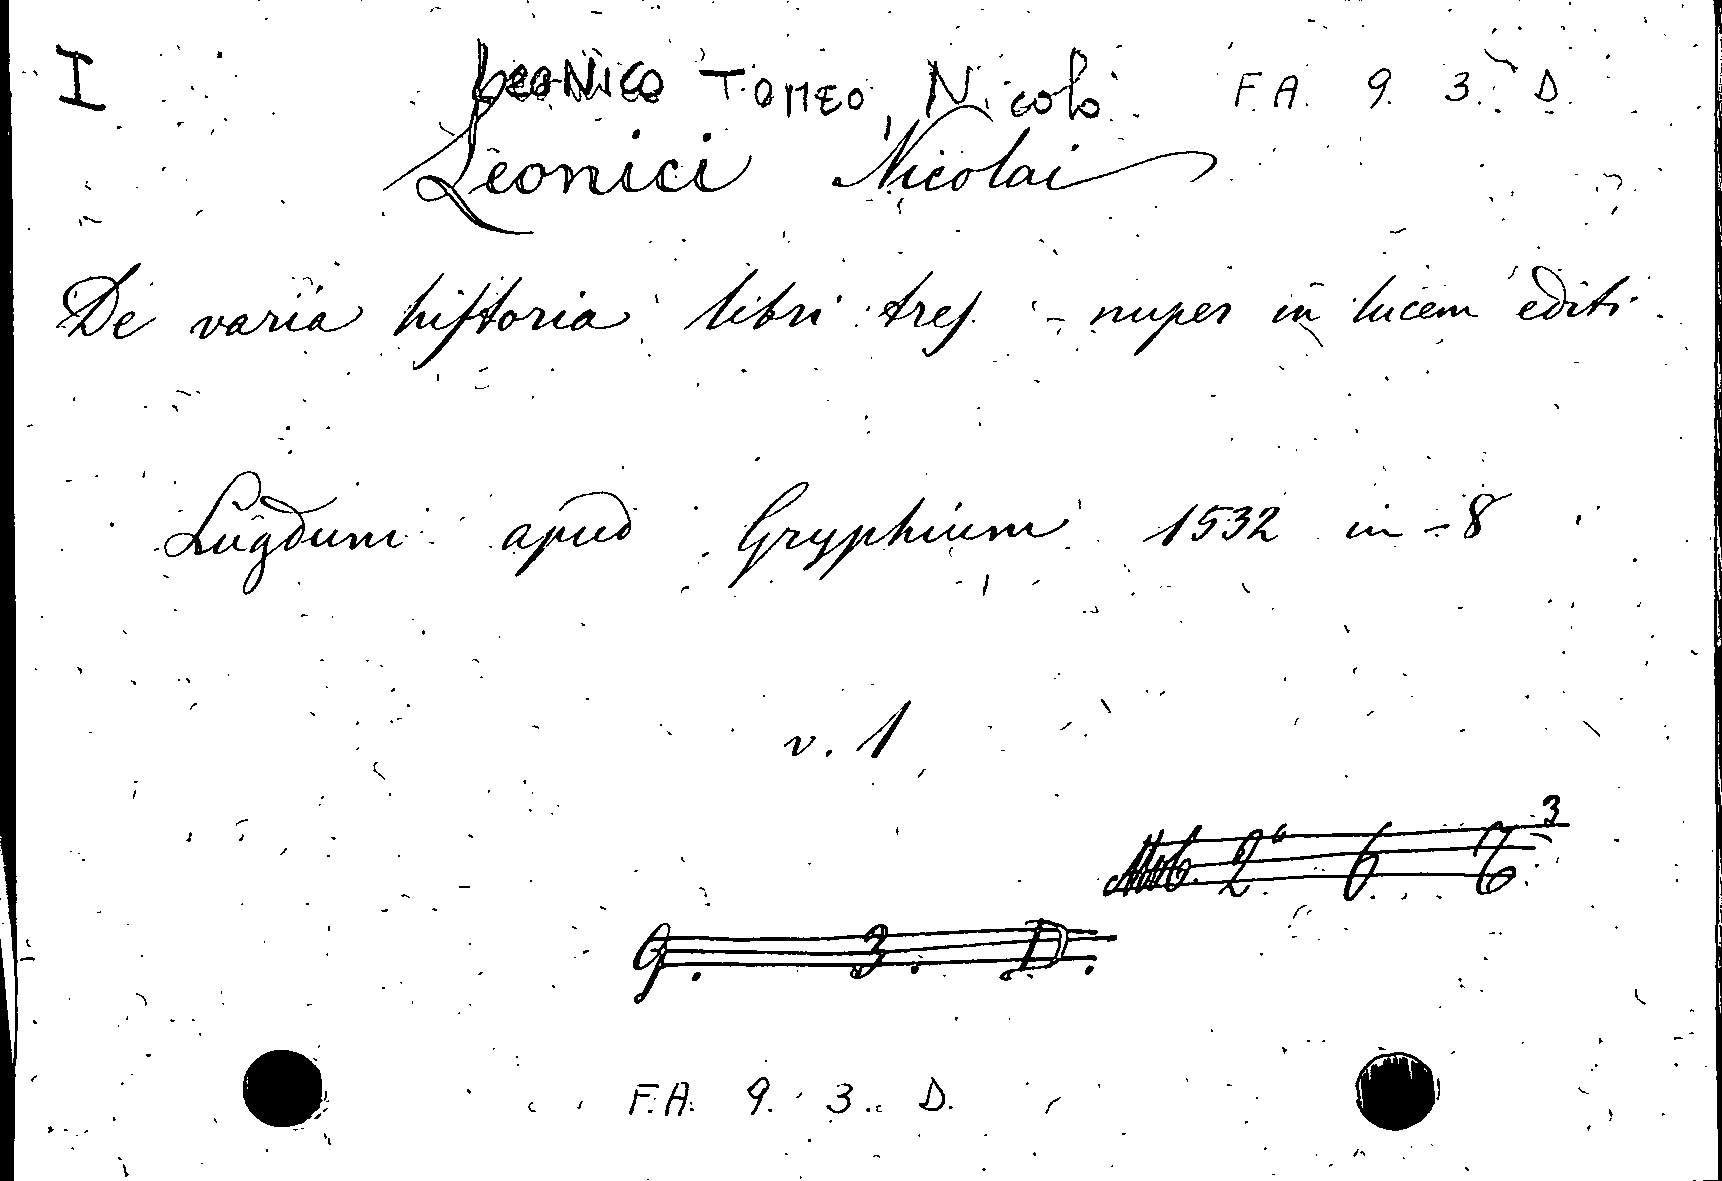 I Leonico Tomeo, Nicolò F.A. 9. 3. D.
Leonici Nicolai
De varia hiſtoria libri treſ - nuper in lucem editi
Lugduni apud Gryphium 1532 in-8
v. 1
2° 6 3
9. 3. D.
F.A. 9. 3. D.